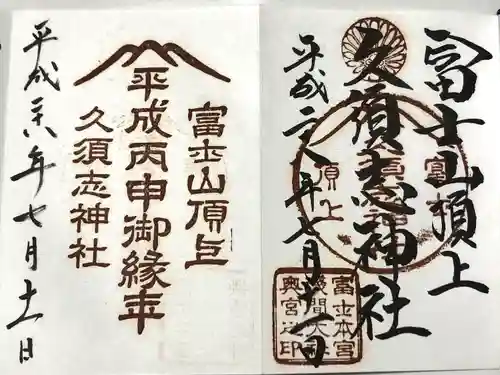 冨士山頂上
久須志神社
平成二八年七月十一日
頂上
富士本宮
浅間大社
奥宮之印
富士山頂上
平成丙申御縁年
久須志神社
平成二十八年七月十一日